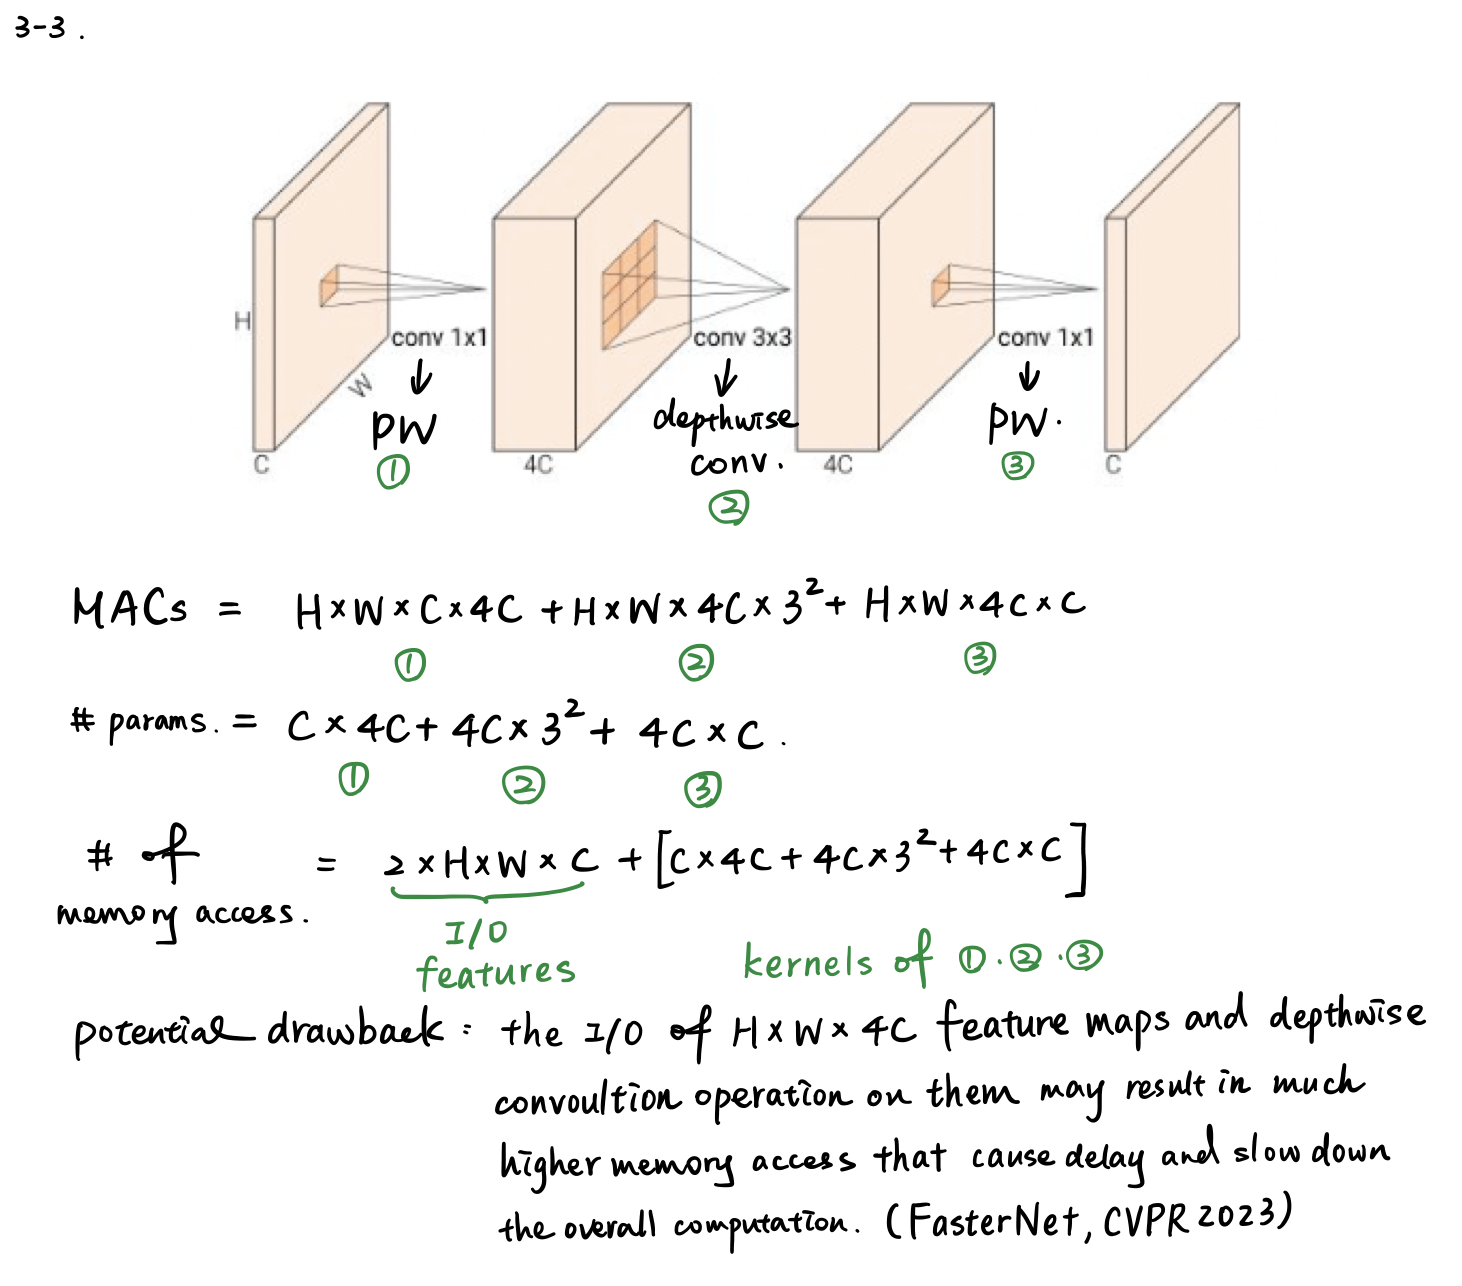 3-3.
H
W
conv 1x1
conv 3x3
conv 1x1
↓
↓
↓
PW
depthwise
PW.
conv.
C
①
4C
4C
③
C
②
MACs = H×W×C×4C + H×W×4C×3² + H×W×4C×C
① ② ③
# params. = C×4C + 4C×3² + 4C×C.
① ② ③
# of = 2×H×W×C + [C×4C + 4C×3² + 4C×C]
memory access.
I/O
features
kernels of ①.②.③
potential drawback: the I/O of H×W×4C feature maps and depthwise
convoultion operation on them may result in much
higher memory access that cause delay and slow down
the overall computation. (FasterNet, CVPR 2023)